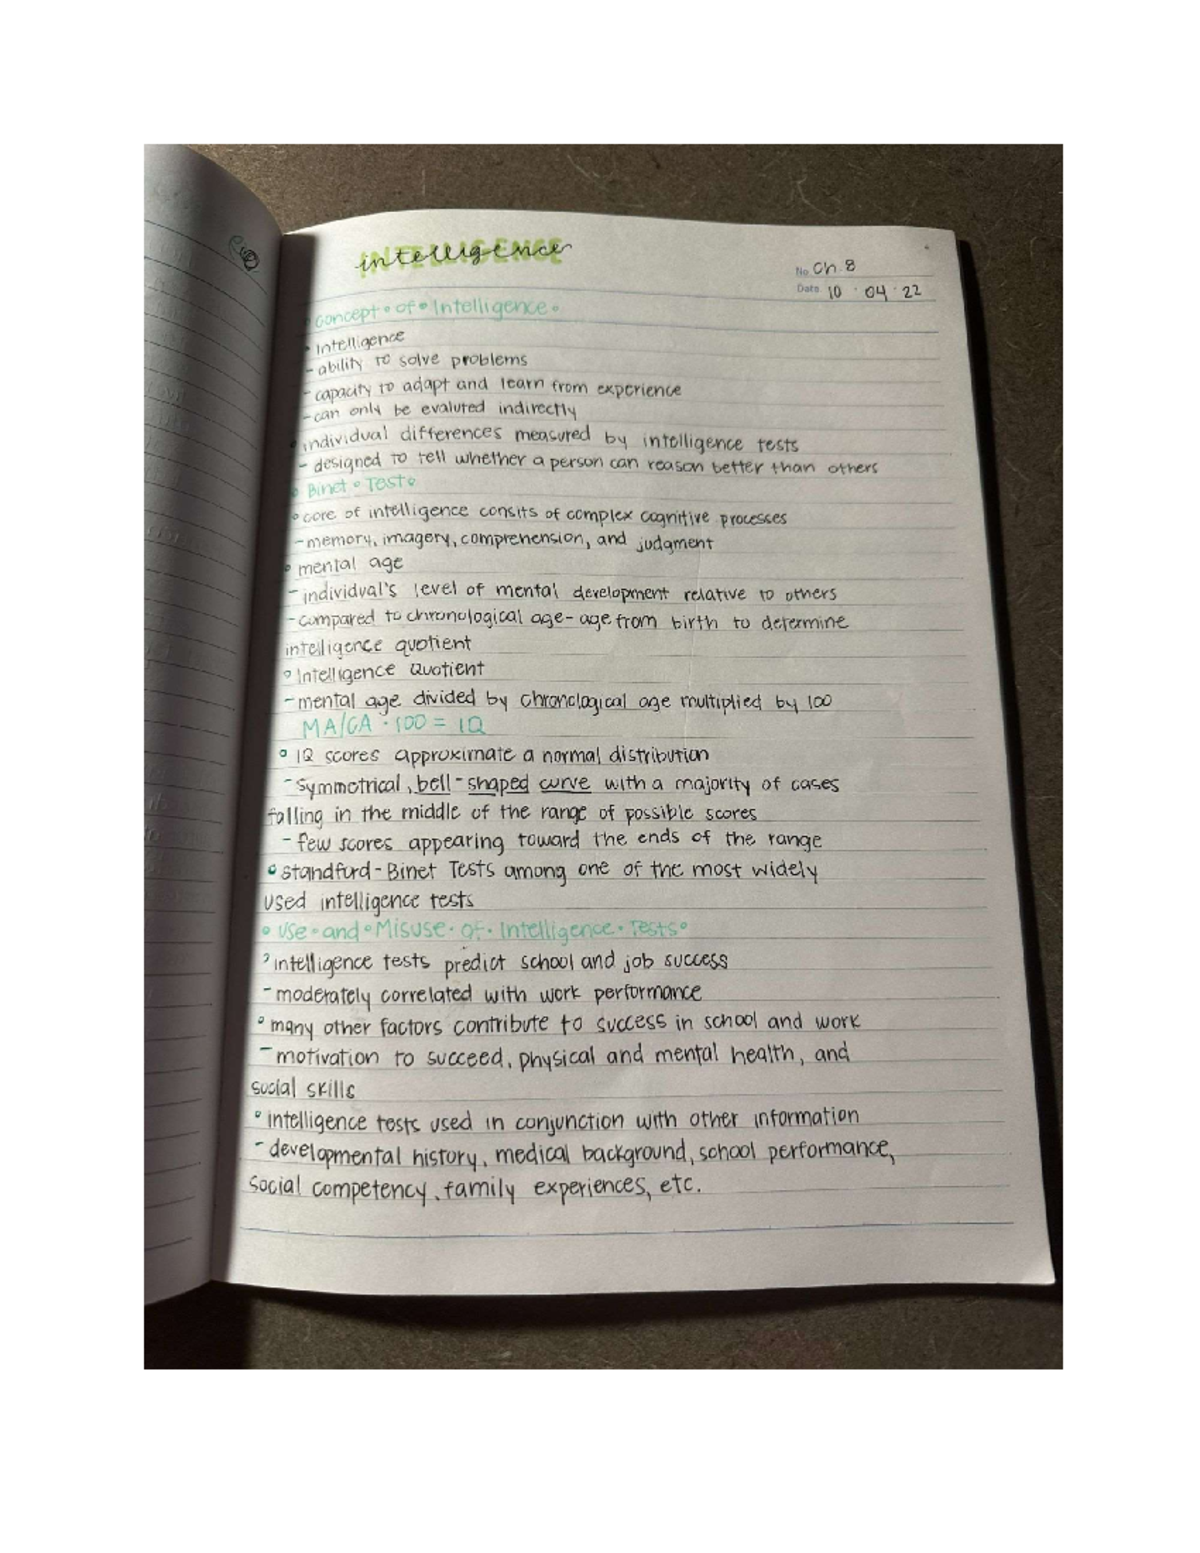 INTELLIGENCE
intelligence
No. Ch. 8
Date 10 · 04 · 22
• Concept • of • Intelligence •
• Intelligence
- ability to solve problems
- capacity to adapt and learn from experience
- can only be evaluted indirectly
• individual differences measured by intelligence tests
- designed to tell whether a person can reason better than others
• Binet • Test •
• core of intelligence consits of complex cognitive processes
- memory, imagery, comprehension, and judgment
• mental age
- individual's level of mental development relative to others
- compared to chronological age - age from birth to determine
intelligence quotient
• Intelligence Quotient
- mental age divided by chronological age multiplied by 100
MA/CA · 100 = IQ
• IQ scores approximate a normal distribution
- Symmetrical, bell - shaped curve with a majority of cases
falling in the middle of the range of possible scores
- few scores appearing toward the ends of the range
• Standford - Binet Tests among one of the most widely
used intelligence tests
• Use • and • Misuse • of • Intelligence • Tests •
• intelligence tests predict school and job success
- moderately correlated with work performance
• many other factors contribute to success in school and work
- motivation to succeed, physical and mental health, and
social skills
• intelligence tests used in conjunction with other information
- developmental history, medical background, school performance,
social competency, family experiences, etc.